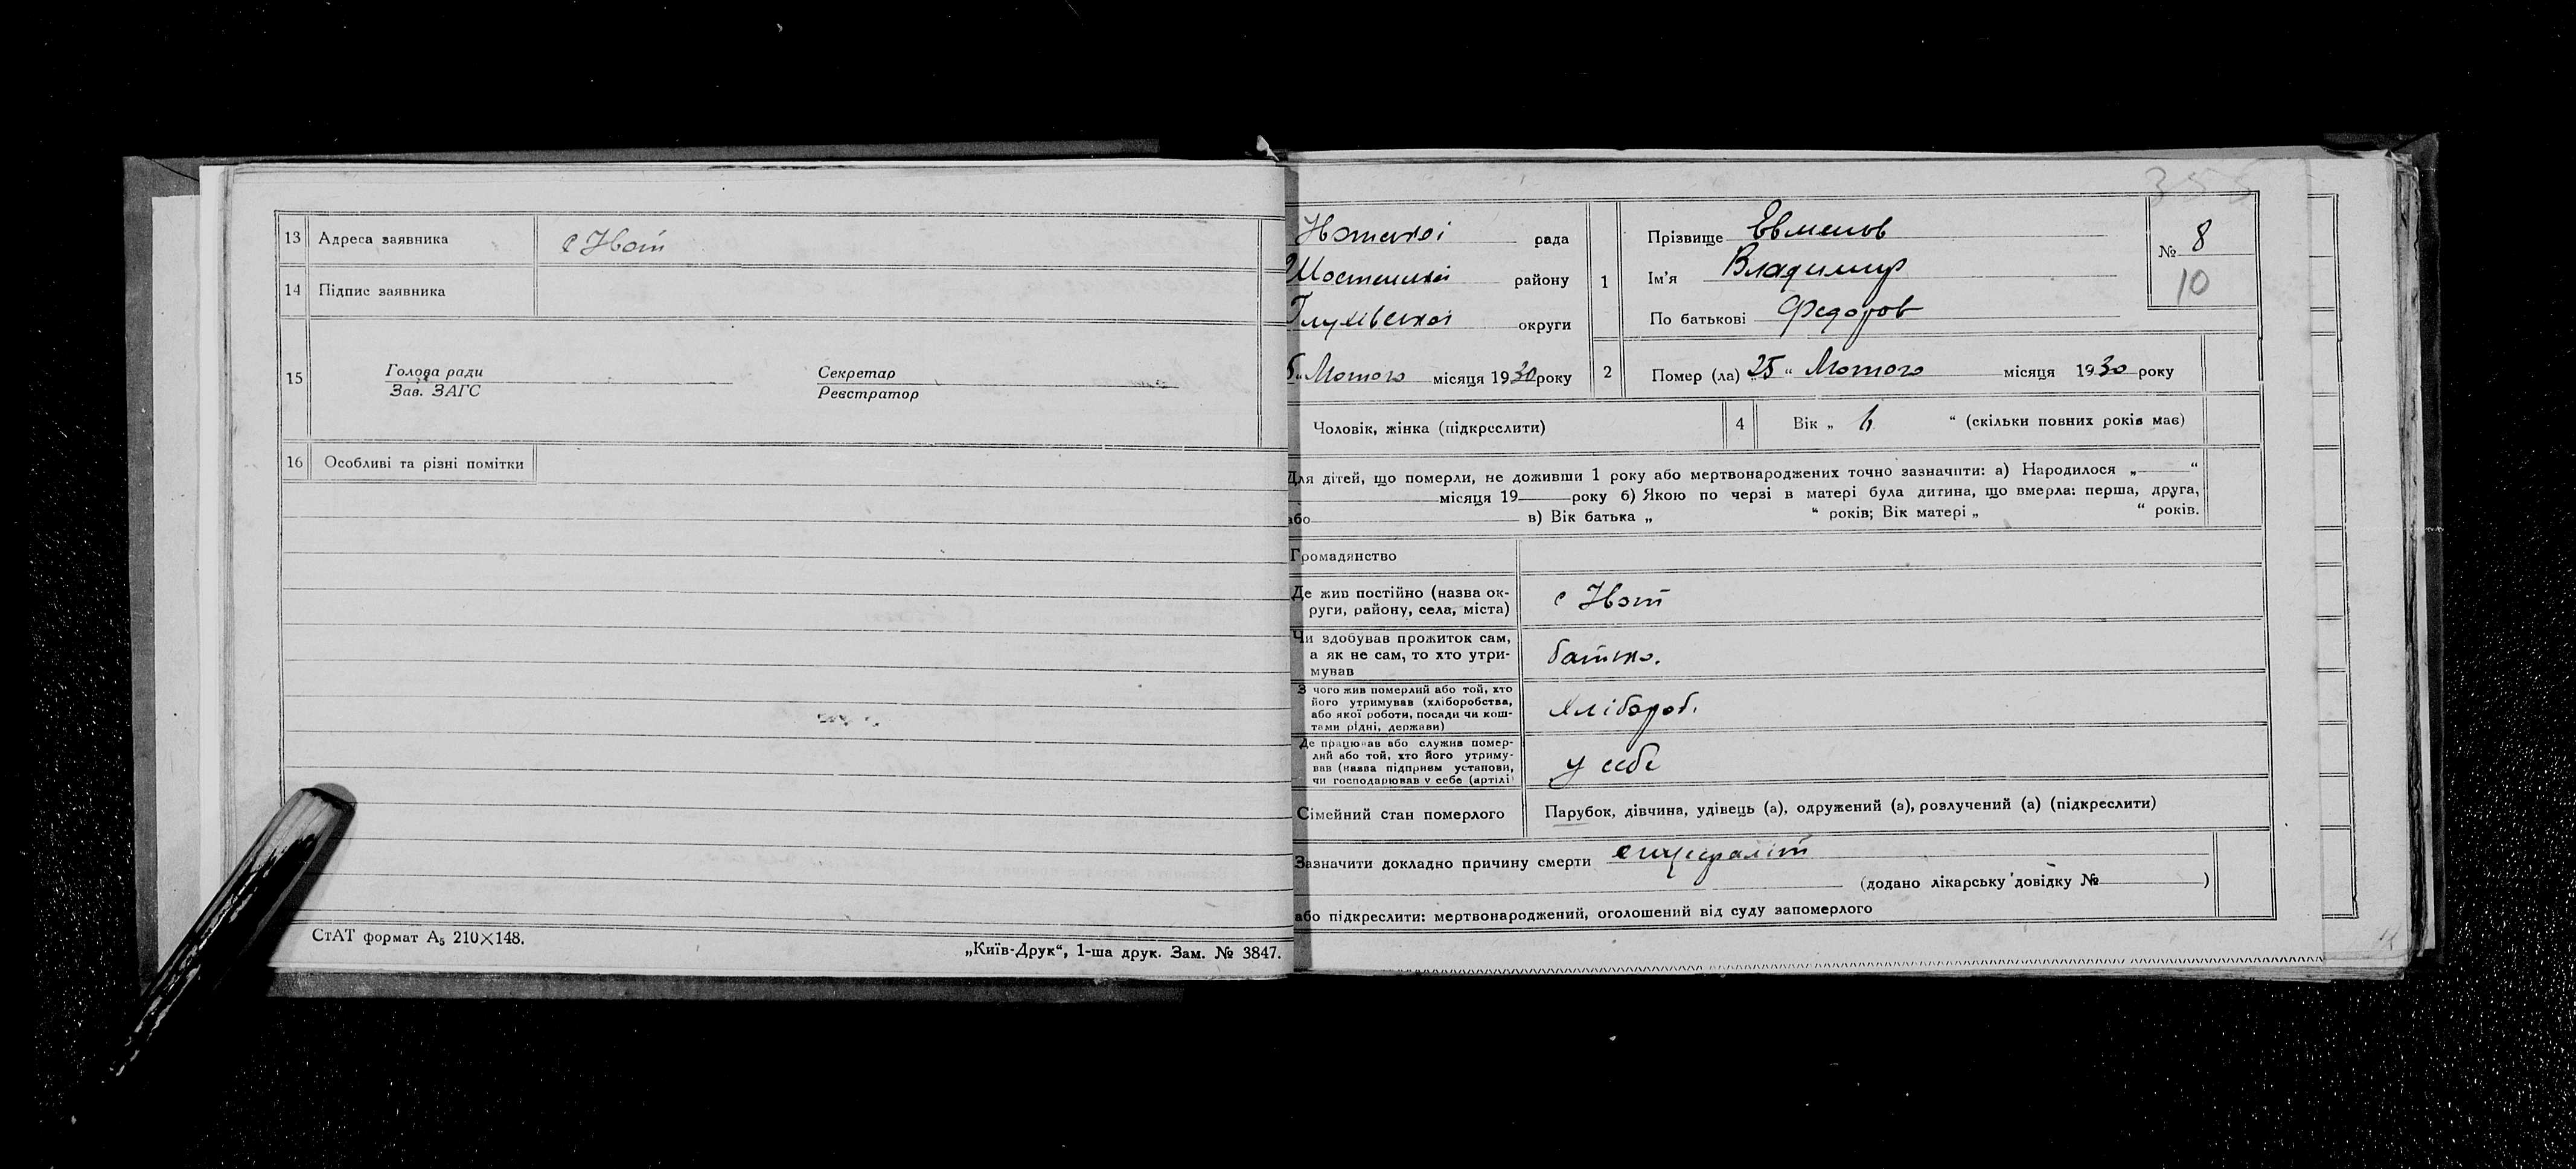 13 Адреса заявника с Івот
14 Підпис заявника
15 Голова ради Секретар
Зав. ЗАГС Реєстратор
16 Особливі та різні помітки
СтАТ формат А₅ 210×148.
„Київ-Друк“, 1-ша друк. Зам. № 3847.
355
Івотської рада
Шостенської району
Глухівської округи
Лютого місяця 1930 року
1 Прізвище Евменов
Ім'я Владимир
По батькові Федоров
№ 8
10
2 Помер (ла) „25“ Лютого місяця 1930 року
Чоловік, жінка (підкреслити)
4 Вік „ 6 “ (скільки повних років має)
Для дітей, що померли, не доживши 1 року або мертвонароджених точно зазначити: а) Народилося „ “
місяця 19 року б) Якою по черзі в матері була дитина, що вмерла: перша, друга,
або в) Вік батька „ “ років; Вік матері „ “ років.
Громадянство
Де жив постійно (назва ок-
руги, району, села, міста) с Івот
Чи здобував прожиток сам,
а як не сам, то хто утри-
мував батько.
З чого жив померлий або той, хто
його утримував (хліборобства,
або якої роботи, посади чи кош-
тами рідні, держави) хлібороб.
Де працював або служив помер-
лий або той, хто його утриму-
вав (назва підприєм установи,
чи господарював у себе (артілі) у себе
Сімейний стан померлого Парубок, дівчина, удівець (а), одружений (а), розлучений (а) (підкреслити)
Зазначити докладно причину смерти
(додано лікарську довідку № )
або підкреслити: мертвонароджений, оголошений від суду запомерлого